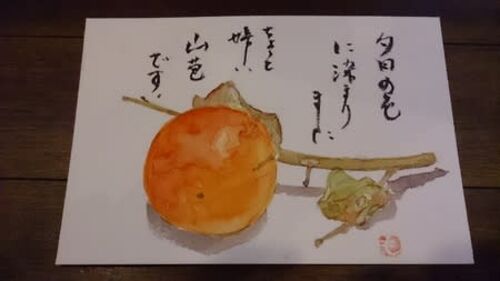 夕日の色
に染まり
ました
ちょっと
嬉しい
山苞
です。